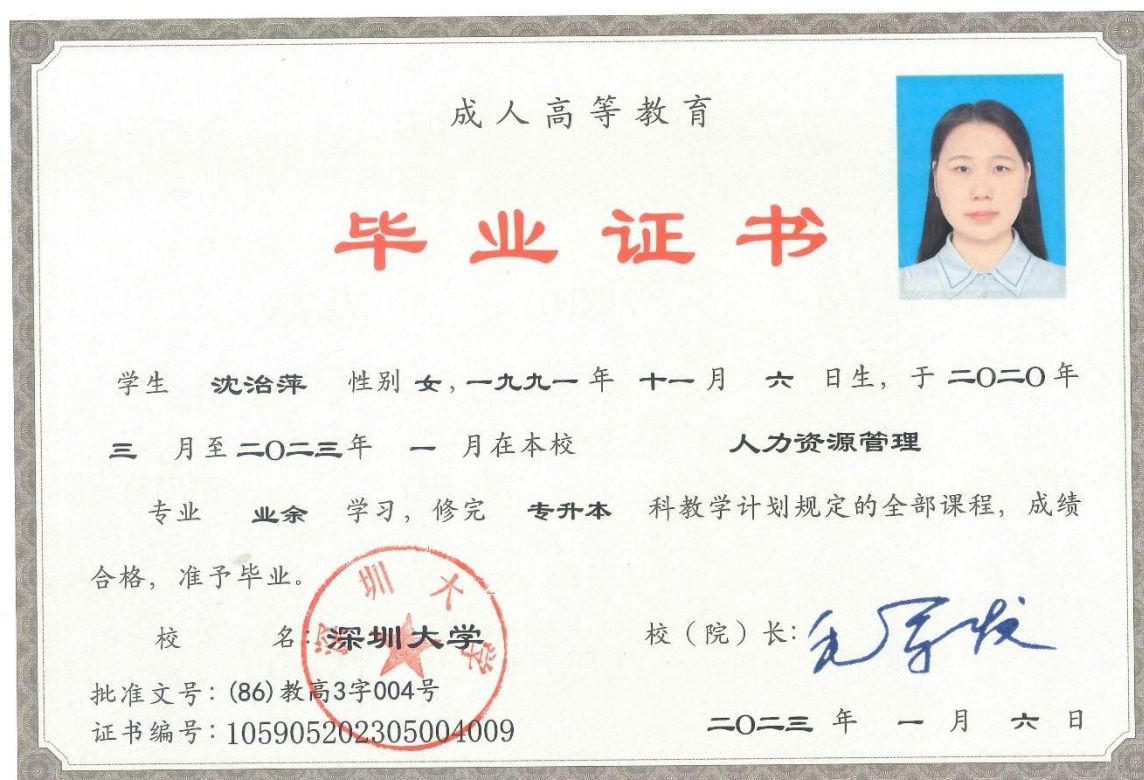 成人高等教育
毕业证书
学生 沈治萍 性别 女,一九九一年 十一月 六 日生,于二〇二〇年
三 月至二〇二三年 一 月在本校 人力资源管理
专业 业余 学习,修完 专升本 科教学计划规定的全部课程,成绩
合格,准予毕业。
校 名:深圳大学
深圳大学
校(院)长:毛军发
批准文号:(86)教高3字004号
证书编号:105905202305004009
二〇二三 年 一 月 六 日